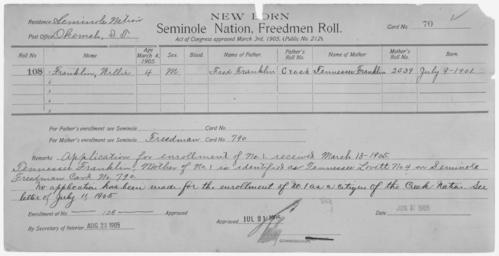 NEW BORN
Residence Seminole Nation
Seminole Nation, Freedmen Roll.
Card No. 70
Post Office Okemah, I.T.
Act of Congress approved March 3rd, 1905, (Public No. 212).
Roll No. Name Age March 4, 1905. Sex. Blood. Name of Father. Father's Roll No. Name of Mother. Mother's Roll No. Born.
108 Franklin, Willie 4 M Fred Franklin Creek Tennessee Franklin 2039 July 9-1901
For Father's enrollment see Seminole Card No.
For Mother's enrollment see Seminole Freedman Card No. 790
Remarks Application for enrollment of No. 1 received March 13-1905
Tennessee Franklin, Mother of No. 1 is identified as Tennessee Lovett No 4 on Seminole
Freedman Card No. 790.
No application has been made for the enrollment of No. 1 as a citizen of the Creek Nation. See
letter of July 11, 1905
Enrollment of No. 108 Approved
Approved JUL 21 1905
By Secretary of Interior AUG 23 1905
COMMISSIONER.
1905